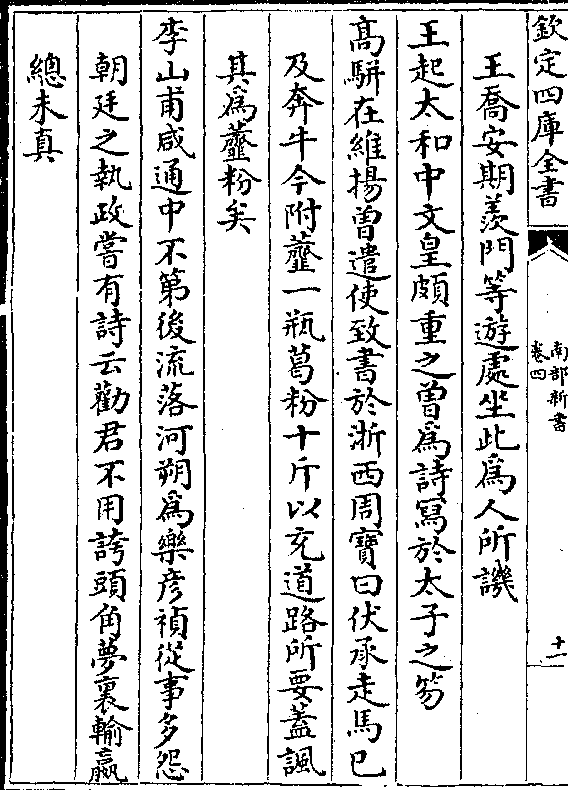 欽定四庫全書
南部新書
卷四
十一
王喬安期羨門等遊處坐此爲人所譏
王起太和中文皇頗重之曾爲詩寫於太子之笏
高駢在維揚曽遣使致書於浙西周寶曰伏承走馬已
及奔牛今附虀一瓶葛粉十斤以充道路所要蓋諷
其爲虀粉矣
李山甫咸通中不第後流落河朔爲樂彦禎從事多怨
朝廷之執政嘗有詩云勸君不用誇頭角夢裏輸贏
總未真